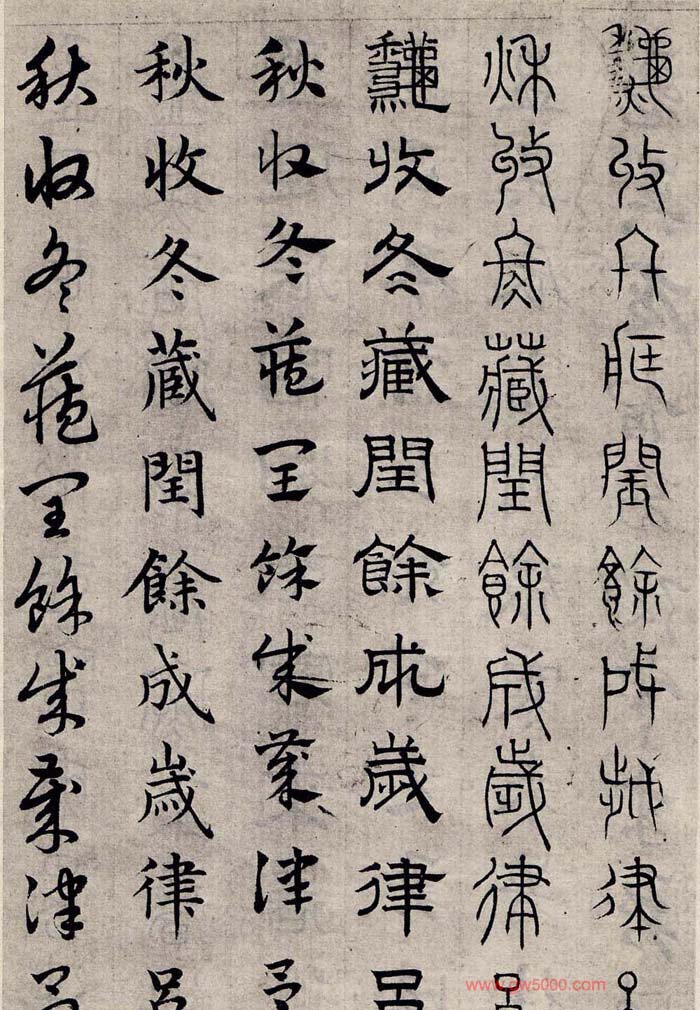 秋收冬藏閏餘成歲律呂
秋收冬藏閏餘成歲律呂
秋收冬藏閏餘成歲律呂
秋收冬藏閏餘成歲律呂
秋收冬藏閏餘成歲律呂
秋收冬藏閏餘成歲律呂
www.gw5000.com